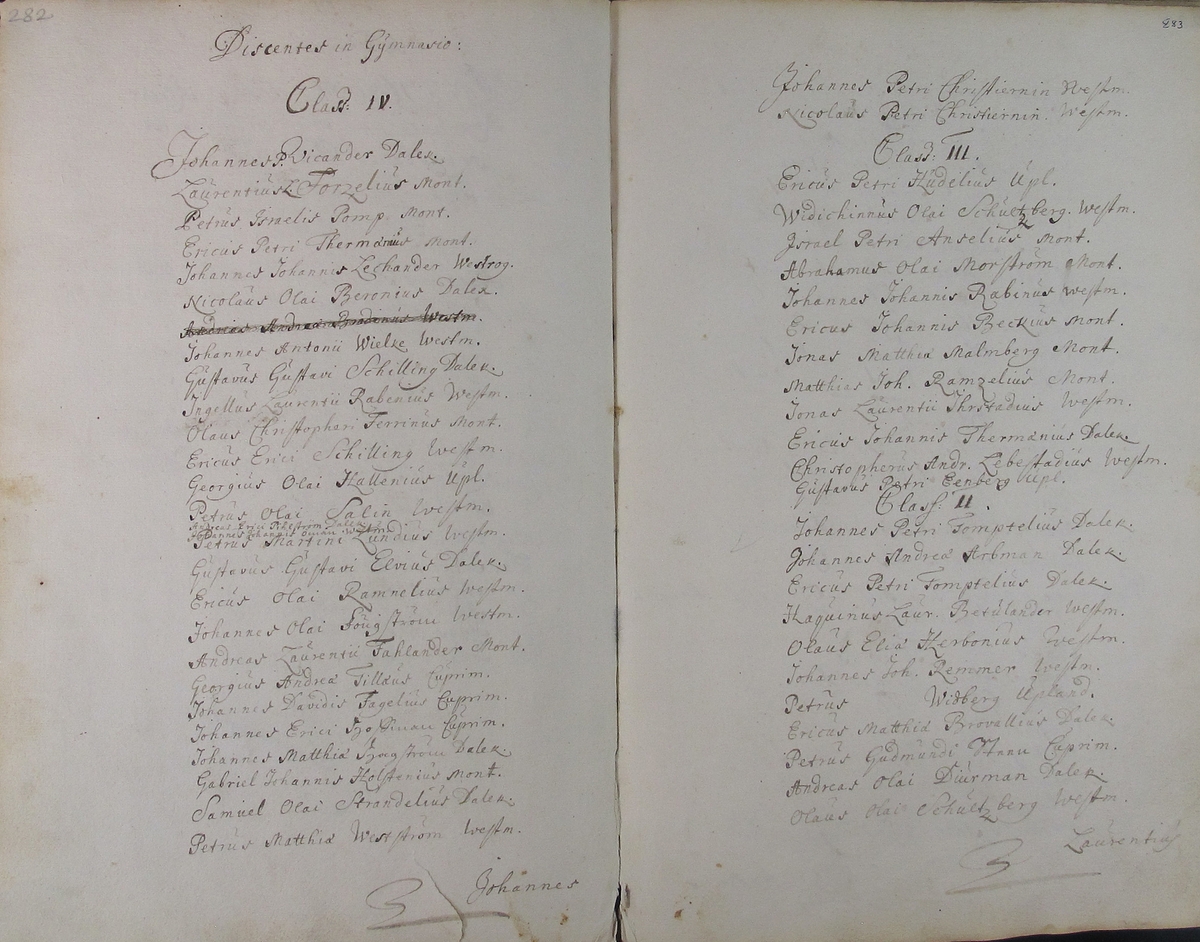 282
Discentes in Gÿmnasio:
Class: IV.
Johannes P. Vicander Dalek.
Laurentius L. Torzelius Mont.
Petrus Israelis Pomp. Mont.
Ericus Petri Thermænius Mont.
Johannes Johannis Lechander Westrog.
Nicolaus Olai Beronius Dalek.
Andreas Andreæ Westm.
Johannes Antonii Wielke Westm.
Gustavus Gustavi Schilling Dalek.
Ingellus Laurentii Rabenius Westm.
Olaus Christophori Ferrinus Mont.
Ericus Erici Schilling Westm.
Georgius Olai Hallenius Upl.
Petrus Olai Salin Westm.
Andreas Erici
Johannes Johannis
Petrus Martini Lundius Westm.
Gustavus Gustavi Elvius Dalek.
Ericus Olai Ramnelius Westm.
Johannes Olai Westm.
Andreas Laurentii Fahlander Mont.
Georgius Andreæ Tillæus Cuprim.
Johannes Davidis Fagelius Cuprim.
Johannes Erici Cuprim.
Johannes Matthiæ Dalek.
Gabriel Johannis Holstenius Mont.
Samuel Olai Strandelius Dalek.
Petrus Matthiæ Westström Westm.
Johannes
283
Johannes Petri Christiernin Westm.
Nicolaus Petri Christiernin. Westm.
Class: III.
Ericus Petri Hudelius Upl.
Widichinnus Olai Schultzberg. Westm.
Israel Petri Anselius Mont.
Abrahamus Olai Morström Mont.
Johannes Johannis Rabinus Westm.
Ericus Johannis Beckius Mont.
Jonas Matthiæ Malmberg Mont.
Matthias Joh. Ramzelius Mont.
Jonas Laurentii Westm.
Ericus Johannis Thermænius Dalek.
Christopherus Andr. Lebestadius Westm.
Gustavus Petri Eenberg Upl.
Class: II.
Johannes Petri Tomptelius Dalek.
Johannes Andreæ Arbman Dalek.
Ericus Petri Tomptelius Dalek.
Haquinus Laur. Betulander Westm.
Olaus Eliæ Herbonius Westm.
Johannes Joh. Remmer Westm.
Petrus Widberg Upland.
Ericus Matthiæ Brovallius Dalek.
Petrus Gudmundi Cuprim.
Andreas Olai Diurman Dalek.
Olaus Olai Schultzberg Westm.
Laurentius